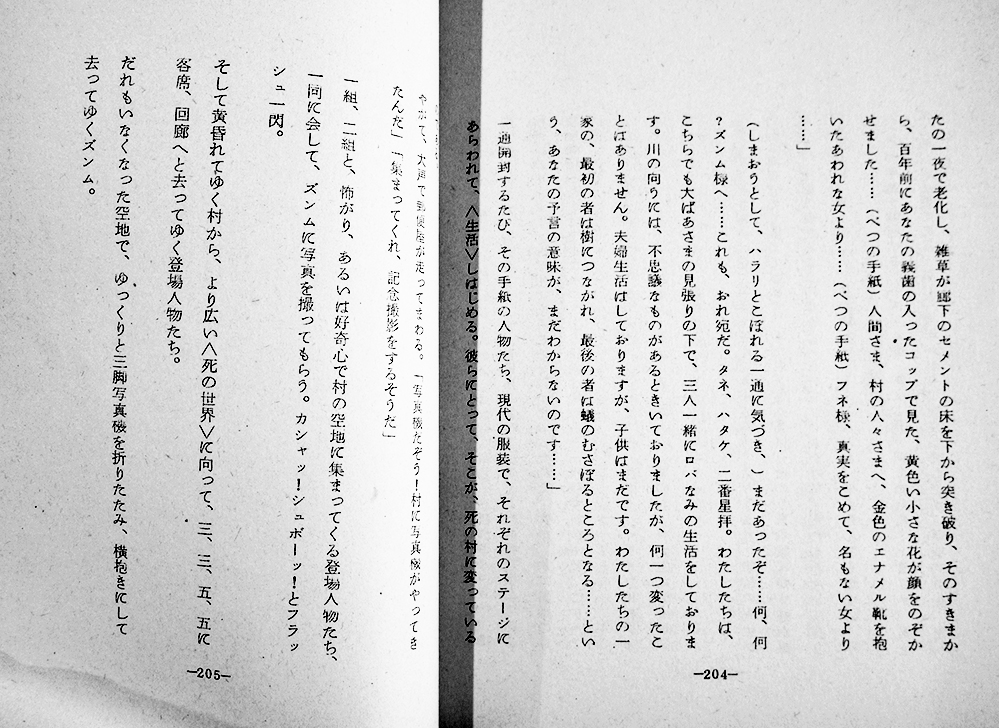 たの一夜で老化し、雑草が廊下のセメントの床を下から突き破り、そのすきまか
ら、百年前にあなたの義歯の入ったコップで見た、黄色い小さな花が顔をのぞか
せました……（べつの手紙）人間さま、村の人々さまへ、金色のエナメル靴を抱
いたあわれな女より……（べつの手紙）フネ様、真実をこめて、名もない女より
……」
（しまおうとして、ハラリとこぼれる一通に気づき、）まだあったぞ……何、何
？ズンム様へ……これも、おれ宛だ。タネ、ハタケ、二番星拝。わたしたちは、
こちらでも大ばあさまの見張りの下で、三人一緒にロバなみの生活をしておりま
す。川の向うには、不思議なものがあるときいておりましたが、何一つ変ったこ
とはありません。夫婦生活はしておりますが、子供はまだです。わたしたちの一
家の、最初の者は樹につながれ、最後の者は蟻のむさぼるところとなる……とい
う、あなたの予言の意味が、まだわからないのです……」
一通開封するたび、その手紙の人物たち、現代の服装で、それぞれのステージに
あらわれて、＜生活＞しはじめる。彼らにとって、そこが、死の村に変っている
—204—
やがて、大声で郵便屋が走ってまわる。「写真機だぞう！村に写真機がやってき
たんだ」「集まってくれ、記念撮影をするそうだ」
一組、二組と、怖がり、あるいは好奇心で村の空地に集まってくる登場人物たち、
一同に会して、ズンムに写真を撮ってもらう。カシャッ！シュボーッ！とフラッ
シュ一閃。
そして黄昏れてゆく村から、より広い＜死の世界＞に向って、三、三、五、五に
客席、回廊へと去ってゆく登場人物たち。
だれもいなくなった空地で、ゆっくりと三脚写真機を折りたたみ、横抱きにして
去ってゆくズンム。
—205—